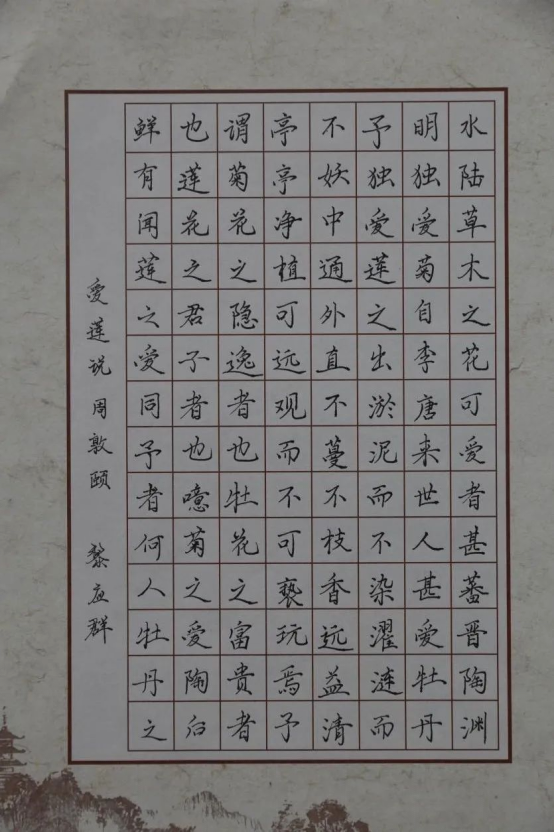 水陆草木之花可爱者甚蕃晋陶渊
明独爱菊自李唐来世人甚爱牡丹
予独爱莲之出淤泥而不染濯涟而
不妖中通外直不蔓不枝香远益清
亭亭净植可远观而不可亵玩焉予
谓菊花之隐逸者也牡花之富贵者
也莲花之君子者也噫菊之爱陶后
鲜有闻莲之爱同予者何人牡丹之
爱莲说 周敦颐 黎应群